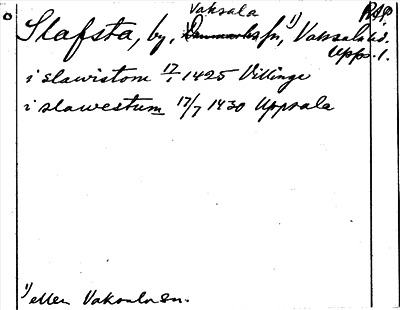 Vaksala RAP.
Slafsta, by, Danmarks sn, ¹) Vaksala hd.
Upps. l.
i slawistom 17/1 1425 Villinge
i slawestum 17/7 1430 Uppsala
¹) eller Vaksala sn.